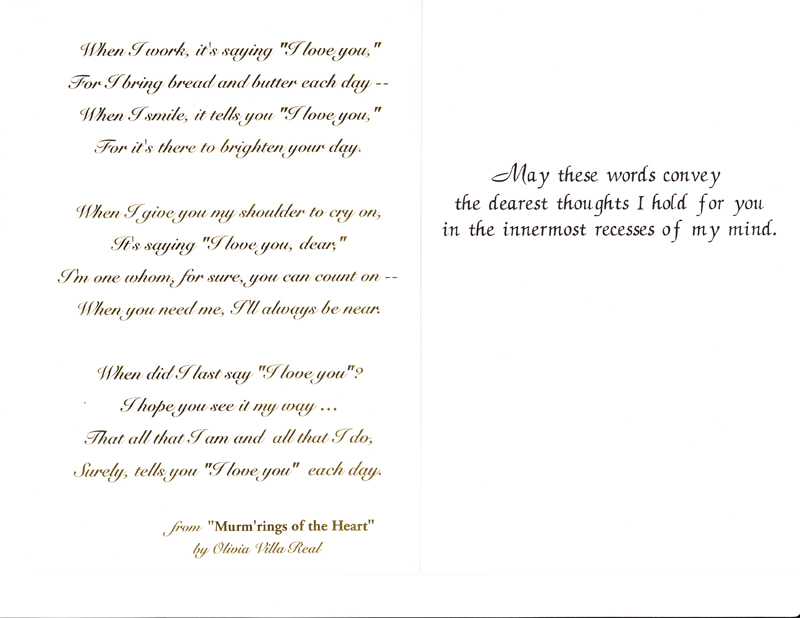 When I work, it's saying "I love you,"
For I bring bread and butter each day --
When I smile, it tells you "I love you,"
For it's there to brighten your day.
When I give you my shoulder to cry on,
It's saying "I love you, dear,"
I'm one whom, for sure, you can count on --
When you need me, I'll always be near.
When did I last say "I love you"?
I hope you see it my way ...
That all that I am and all that I do,
Surely, tells you "I love you" each day.
from "Murm'rings of the Heart"
by Olivia Villa-Real
May these words convey
the dearest thoughts I hold for you
in the innermost recesses of my mind.